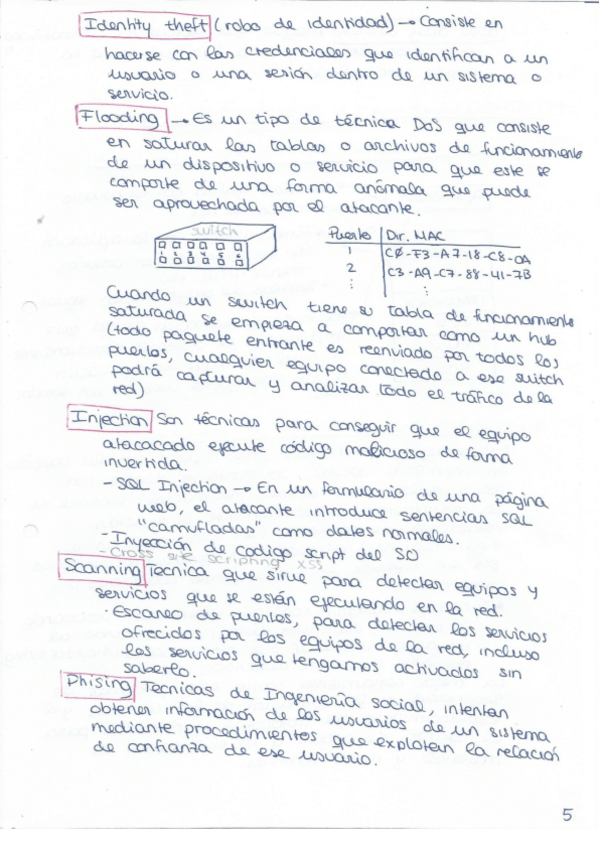 Identity theft (robo de identidad) → Consiste en
hacerse con las credenciales que identifican a un
usuario o una sesión dentro de un sistema o
servicio.
Flooding → Es un tipo de técnica DoS que consiste
en saturar las tablas o archivos de funcionamiento
de un dispositivo o servicio para que este se
comporte de una forma anómala que puede
ser aprovechada por el atacante.
switch
Puerto | Dir. MAC
1 | C0-F3-A7-18-C8-0A
2 | C3-A9-C7-88-41-7B
⋮ | ⋮
Cuando un switch tiene su tabla de funcionamiento
saturada se empieza a comportar como un hub
(todo paquete entrante es reenviado por todos los
puertos, cualquier equipo conectado a ese switch
podrá capturar y analizar todo el tráfico de la
red)
Injection Son técnicas para conseguir que el equipo
atacacado ejecute código malicioso de forma
invertida.
- SQL Injection → En un formulario de una página
web, el atacante introduce sentencias SQL
"camufladas" como datos normales.
- Inyección de codigo script del SO
- Cross site scripting XSS
Scanning Tecnica que sirve para detectar equipos y
servicios que se están ejecutando en la red.
· Escaneo de puertos, para detectar los servicios
ofrecidos por los equipos de la red, incluso
los servicios que tengamos activados sin
saberlo.
Phising Tecnicas de Ingeniería social, intentan
obtener información de los usuarios de un sistema
mediante procedimientos que explotan la relación
de confianza de ese usuario.
5